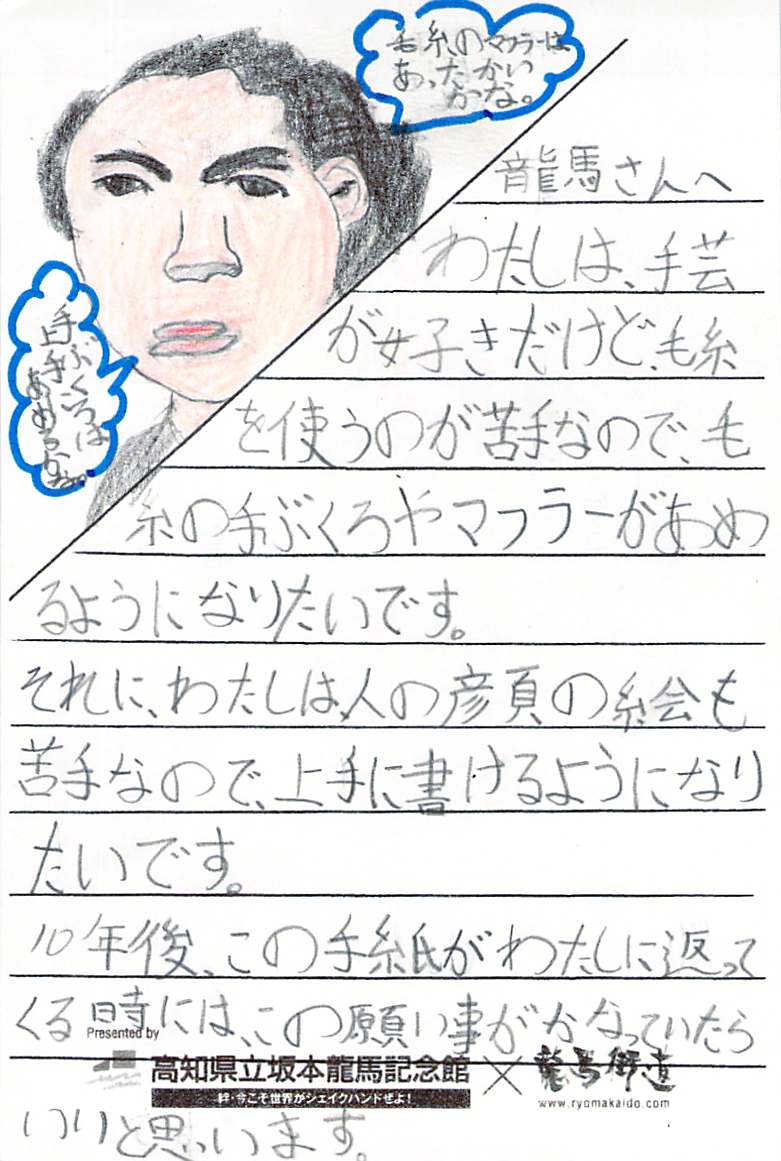 毛糸のマフラーは
あったかい
かな。
手ぶくろは
上手に
あめるかな。
龍馬さんへ
わたしは、手芸
が好きだけど、毛糸
を使うのが苦手なので、毛
糸の手ぶくろやマフラーがあめ
るようになりたいです。
それに、わたしは人の顔の絵も
苦手なので、上手に書けるようになり
たいです。
10年後、この手紙がわたしに返って
くる時には、この願い事がかなっていたら
いいと思います。
Presented by
高知県立坂本龍馬記念館×龍馬街道
絆・今こそ世界がシェイクハンドぜよ！
www.ryomakaido.com